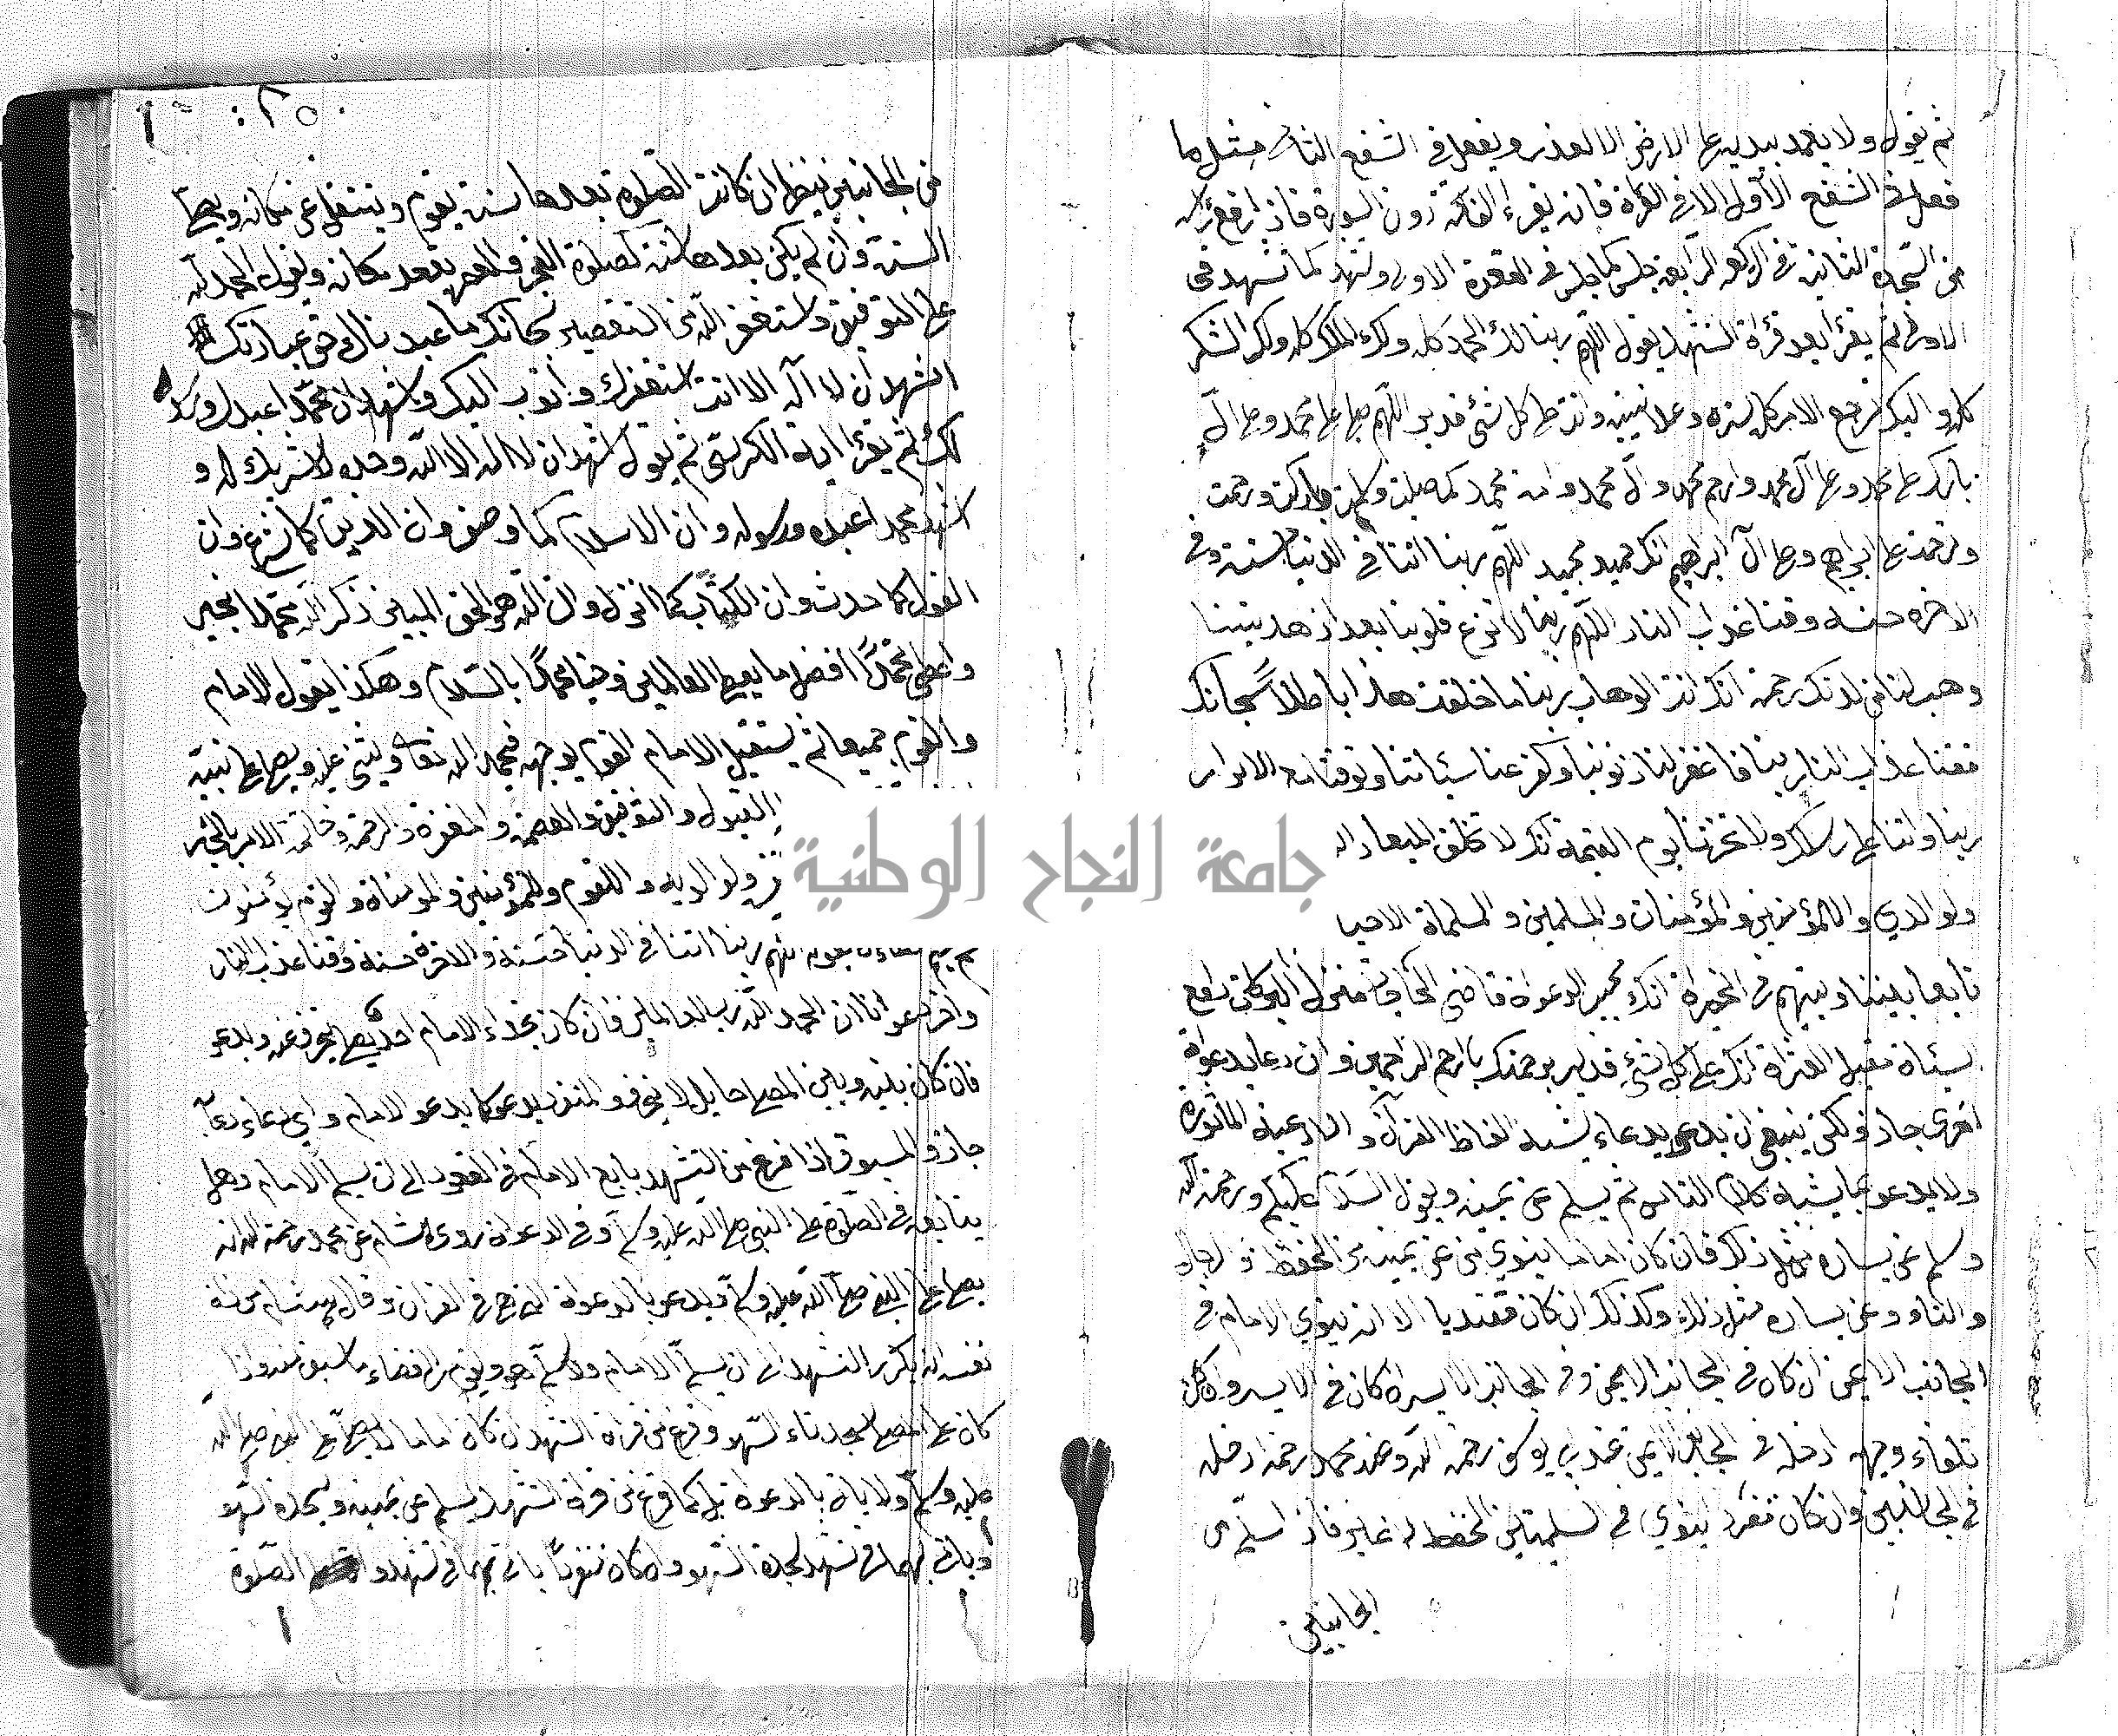 ثم يقول ولا يعمد بيديه على الارض الا لعذر ويفعل في الشفع الثاني مثل ما
فعل في الشفع الأول الا في القراة فانه يقرء الفاتحة دون السورة فاذا رفع راسه
من السجدة الثانية في الركعة الرابعة جلس كما جلس في القعدة الاولى وتشهد كما تشهد في
الاولى ثم يقرأ بعد قراة التشهد يقول اللهم ربنا لك الحمد كله ولك الملك كله ولك الشكر
كله واليك يرجع الامر كله سره وعلانيته وانت على كل شئ قدير اللهم صل على محمد وعلى آل
بارك على محمد وعلى آل محمد وارحم محمد وآل محمد وامة محمد كما صليت وسلمت وباركت ورحمت
وترحمت على ابراهيم وعلى آل ابراهيم انك حميد مجيد اللهم ربنا اتنا في الدنيا حسنة وفي
الاخرة حسنة وقنا عذاب النار اللهم ربنا لا تزغ قلوبنا بعد اذ هديتنا
وهب لنا من لدنك رحمة انك انت الوهاب ربنا ما خلقت هذا باطلاً سبحانك
فقنا عذاب النار ربنا فاغفر لنا ذنوبنا وكفر عنا سيئاتنا وتوفنا مع الابرار
ربنا واتنا على رسلك ولا تخزنا يوم القيمة انك لا تخلف الميعاد
ولوالدي وللمؤمنين والمؤمنات والمسلمين والمسلماة الاحيا
تابع بيننا وبينهم في الخيرة انك مجيب الدعواة قاضي الحاجاة منزل البركاة رافع
السيئاة مقيل العثراة انك على كل شئ قدير برحمتك يا ارحم الراحمين وان دعا بدعواة
اخرى جاز ولكن ينبغي ان يدعو بدعاء يشبه الفاظ القرآن والادعية الماثورة
ولا يدعو بما يشبه كلام الناس ثم يسلم عن يمينه ويقول السلام عليكم ورحمة الله
وسلم عن يساره مثل ذلك فان كان اماما ينوي من عن يمينه من الحفظة والرجال
والنساء وعن يساره مثل ذلك وكذلك ان كان مقتديا الا انه ينوي الامام في
الجانب الايمن ان كان في الجانب الايمن وفي الجانب الايسر ان كان في الايسر وان كان
تلقاء وجهه ادخله في الجانب الايمن عند ابي يوسف رحمه الله وعند محمد رحمه الله ادخله
في الجانبين وان كان منفردا ينوي في التسليمتين الحفظة لا غير فاذا سلم من
الجانبين
٢٥٠
من الجانبين ينظر ان كانت الصلوة بعدها سنة يقوم وينتقل عن مكانه ويصلي
السنة وان لم يكن بعدها سنة كصلوة الفجر والعصر يقعد مكانه ويقول الحمد لله
على التوفيق واستغفر الله من التقصير سبحانك ما عبدناك حق عبادتك
اشهد ان لا اله الا انت استغفرك واتوب اليك واشهد ان محمدا عبدك ورسولك
ثم يقرأ اية الكرسي ثم يقول اشهد ان لا اله الا الله وحده لا شريك له و
اشهد محمدا عبده ورسوله وان الاسلام كما وصف وان الدين كما شرع وان
القول كما حدث وان الكتاب كما انزل وان الله هو الحق المبين ذكر الله محمدا بخير
واعطى محمدا افضل ما يعطي العالمين وحيا محمدا بالسلام وهكذا يقول الامام
والقوم جميعا ثم يستقبل الامام القوم بوجهه فيحمد الله تعالى ويثني عليه ويصلي على نبيه
القبول والتوفيق والعصمة والمغفرة والرحمة وخاتمة الامر بالخير
ولوالديه وللقوم وللمؤمنين والمؤمناة والقوم يؤمنون
ربنا اتنا في الدنيا حسنة والاخرة حسنة وقنا عذاب النار
واخر دعوانا ان الحمد لله رب العالمين فان كان بحذاء الامام احد يصلي ينحرف عنه ويدعو
فان كان بينه وبين المصلي حايل لا ينحرف والمنفرد يدعو كما يدعو الامام واي دعاء دعا
جاز والمسبوق اذا فرغ من التشهد يتابع الامام في القعود الى ان يسلم الامام وهل
يتابعه في الصلوة على النبي صلى الله عليه وسلم وفي الدعواة روى هشام عن محمد رحمه الله انه
يصلي على النبي صلى الله عليه وسلم ويدعو بالدعواة التي في القران وقال هشام من ذاة
نفسه انه يكرر التشهد الى ان يسلم الامام ولا يسلم هو ويقوم الى قضاء ما سبق منه واذا
كان على المصلي سجدتاء السهو وفرغ من قراة التشهد ان كان اماما لا يصلي على النبي صلى الله
عليه وسلم ولا ياتي بالدعواة بل كما فرغ من قراة التشهد يسلم عن يمينه ويسجد للسهو
وياتي بهما في تشهد سجدة السهو وان كان منفردا ياتي بهما في تشهد الصلوة
جامعة النجاح الوطنية